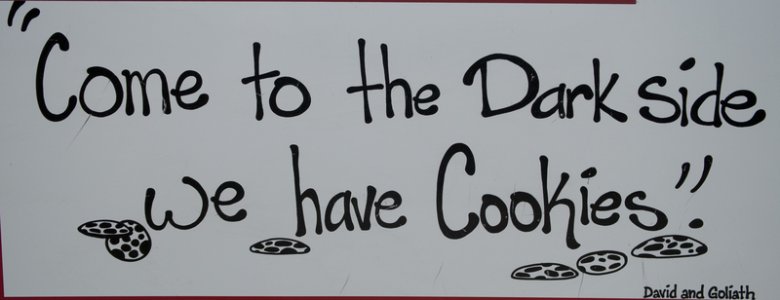 "Come to the Dark side
we have Cookies".
David and Goliath